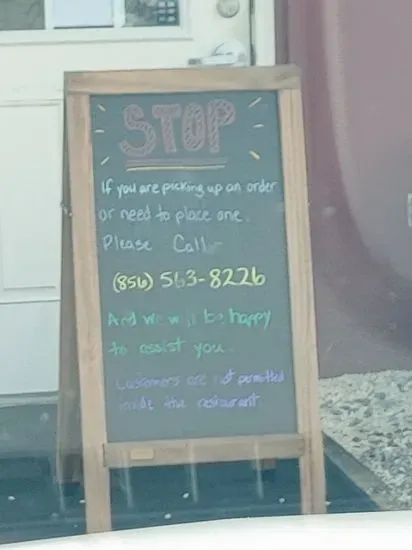 STOP
If you are picking up an order
or need to place one.
Please Call
(856) 563-8226
And we will be happy
to assist you.
Customers are not permitted
inside the restaurant.